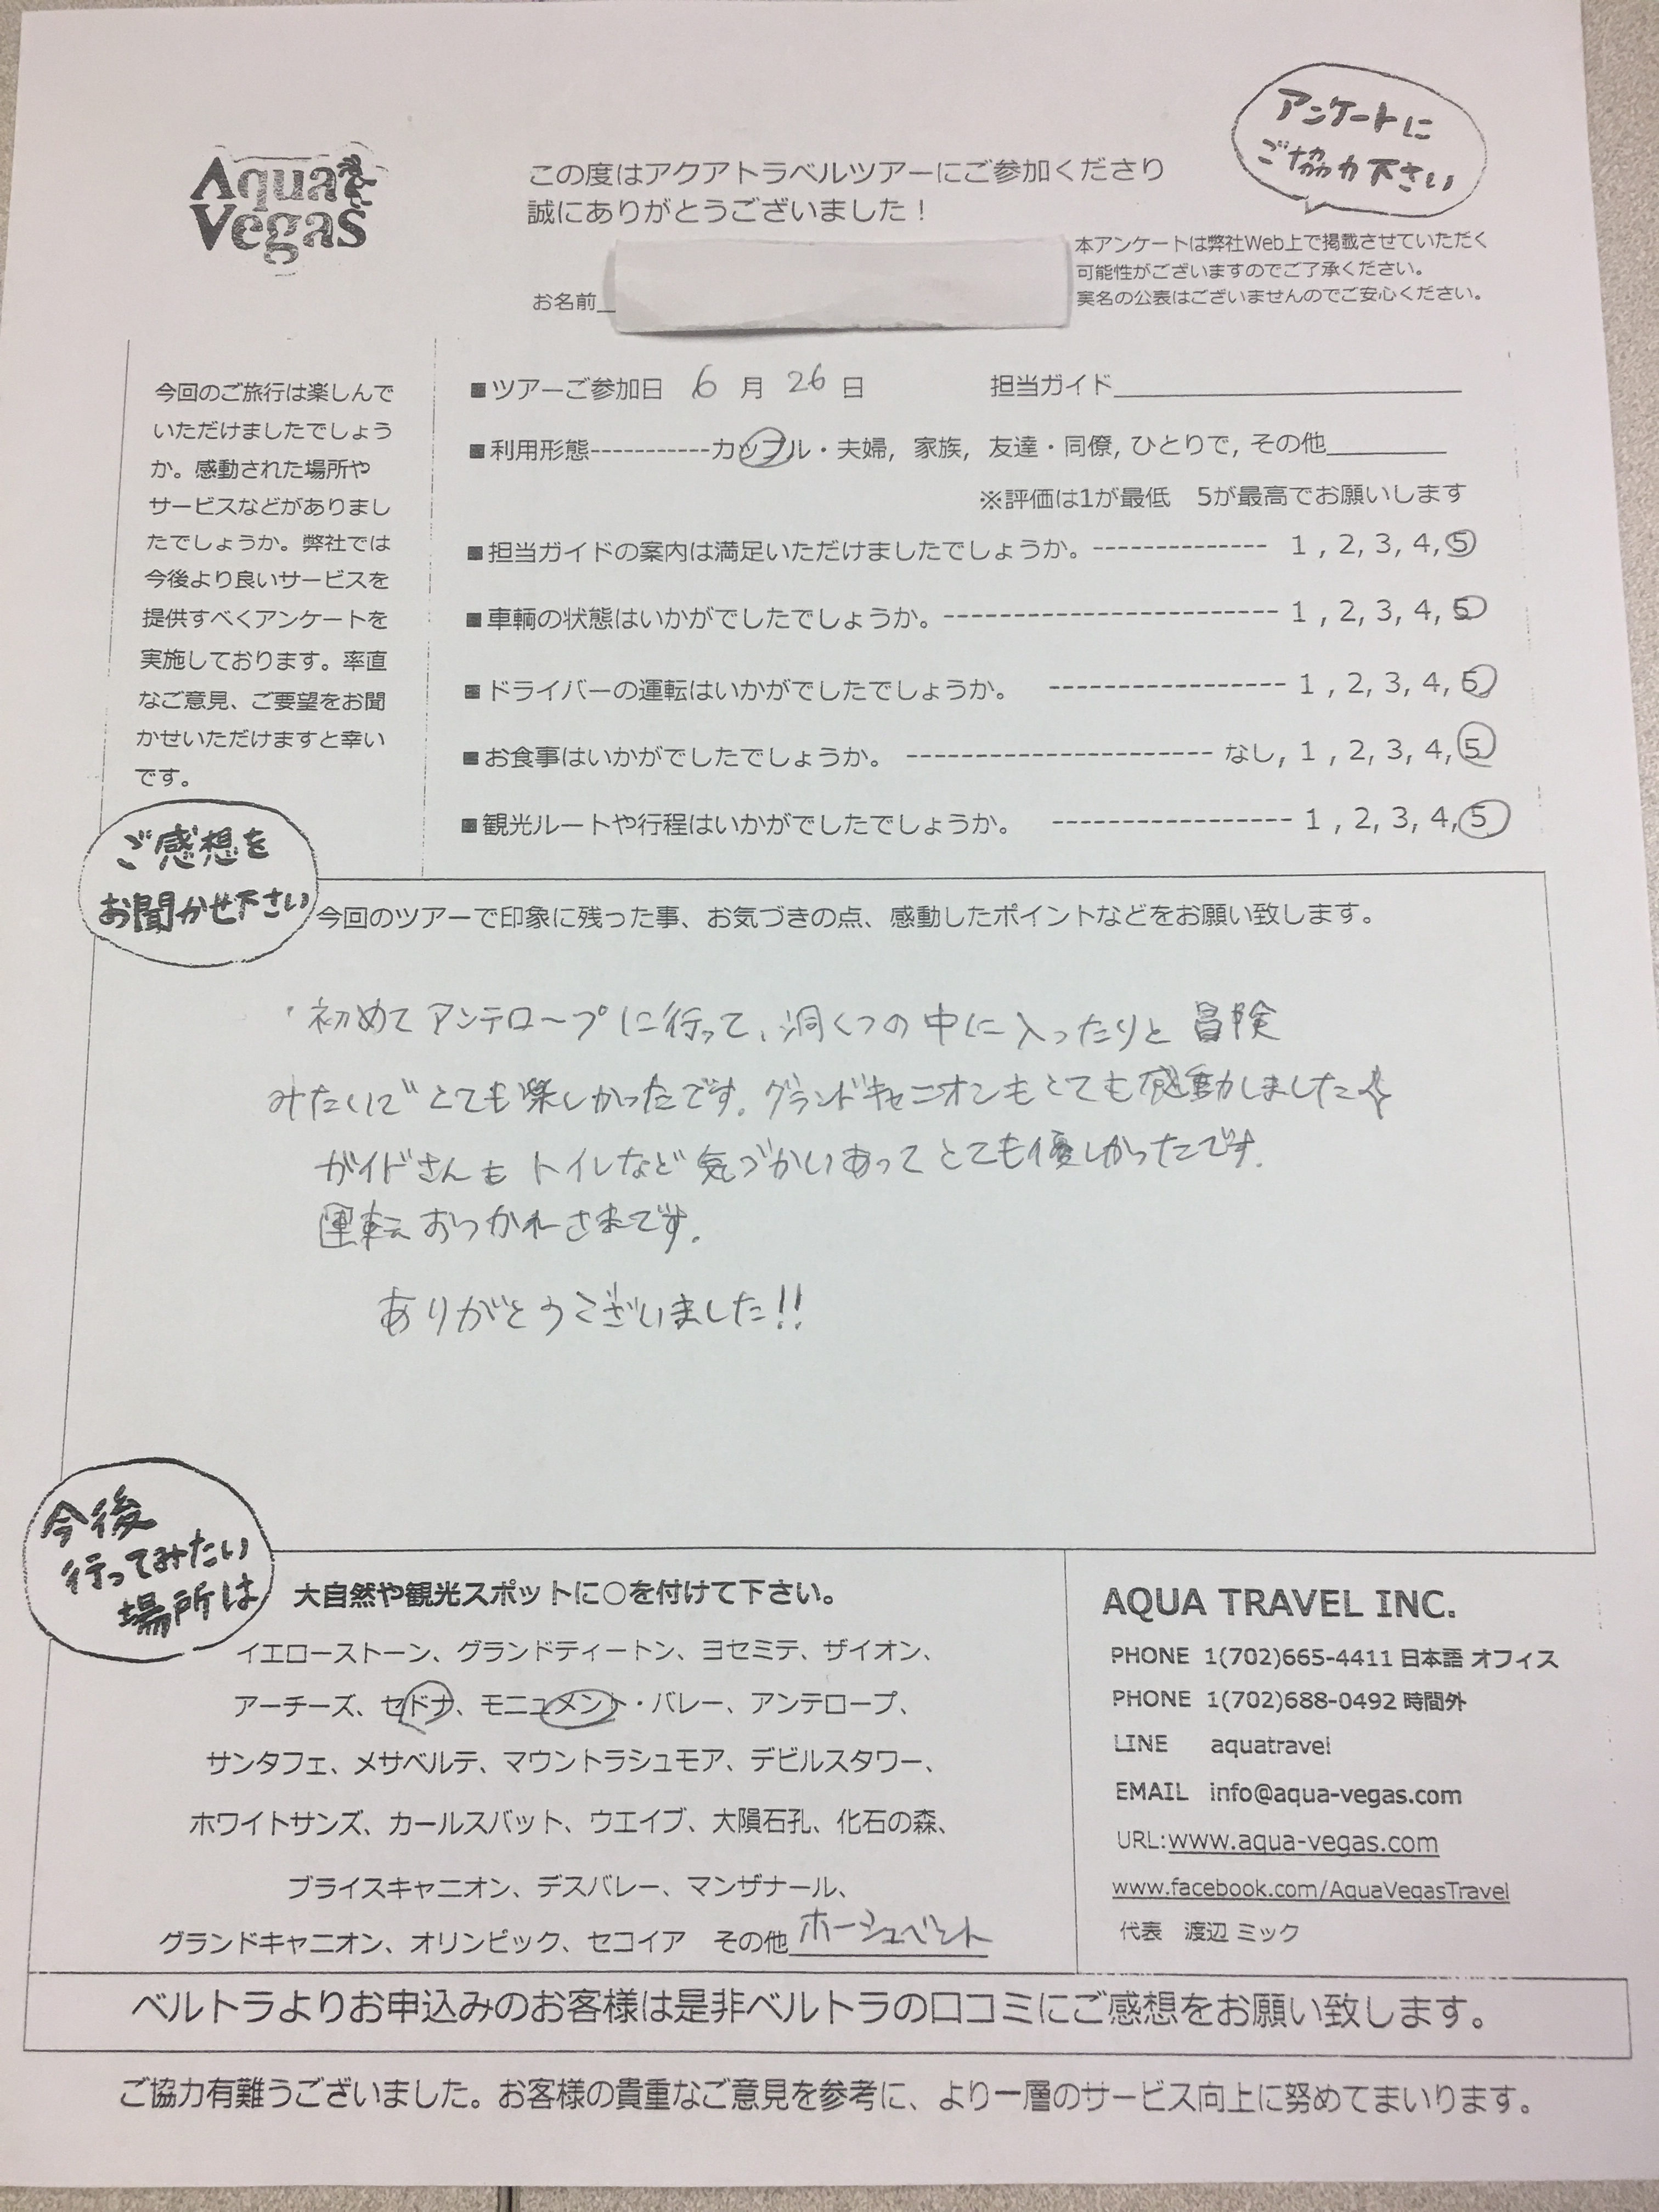 Aqua
Vegas
アンケートに
ご協力下さい
この度はアクアトラベルツアーにご参加くださり
誠にありがとうございました！
お名前
本アンケートは弊社Web上で掲載させていただく
可能性がございますのでご了承ください。
実名の公表はございませんのでご安心ください。
今回のご旅行は楽しんで
いただけましたでしょう
か。感動された場所や
サービスなどがありまし
たでしょうか。弊社では
今後より良いサービスを
提供すべくアンケートを
実施しております。率直
なご意見、ご要望をお聞
かせいただけますと幸い
です。
■ツアーご参加日 6 月 26 日 担当ガイド
■利用形態-----------カップル・夫婦, 家族, 友達・同僚, ひとりで, その他
※評価は1が最低 5が最高でお願いします
■担当ガイドの案内は満足いただけましたでしょうか。-------------- 1 , 2, 3, 4, 5
■車輌の状態はいかがでしたでしょうか。--------------------------- 1 , 2, 3, 4, 5
■ドライバーの運転はいかがでしたでしょうか。 ------------------- 1 , 2, 3, 4, 5
■お食事はいかがでしたでしょうか。 ------------------------ なし, 1 , 2, 3, 4, 5
■観光ルートや行程はいかがでしたでしょうか。 ------------------- 1 , 2, 3, 4, 5
ご感想を
お聞かせ下さい
今回のツアーで印象に残った事、お気づきの点、感動したポイントなどをお願い致します。
初めてアンテロープに行って、洞くつの中に入ったりと冒険
みたいでとても楽しかったです。グランドキャニオンもとても感動しました☆
ガイドさんもトイレなど気づかいあってとても優しかったです。
運転おつかれさまです。
ありがとうございました!!
今後
行ってみたい
場所は
大自然や観光スポットに○を付けて下さい。
イエローストーン、グランドティートン、ヨセミテ、ザイオン、
アーチーズ、セドナ、モニュメント・バレー、アンテロープ、
サンタフェ、メサベルテ、マウントラシュモア、デビルスタワー、
ホワイトサンズ、カールスバット、ウエイブ、大隕石孔、化石の森、
ブライスキャニオン、デスバレー、マンザナール、
グランドキャニオン、オリンピック、セコイア その他 ホーシュベント
AQUA TRAVEL INC.
PHONE 1(702)665-4411 日本語 オフィス
PHONE 1(702)688-0492 時間外
LINE aquatravel
EMAIL info@aqua-vegas.com
URL:www.aqua-vegas.com
www.facebook.com/AquaVegasTravel
代表 渡辺 ミック
ベルトラよりお申込みのお客様は是非ベルトラの口コミにご感想をお願い致します。
ご協力有難うございました。お客様の貴重なご意見を参考に、より一層のサービス向上に努めてまいります。